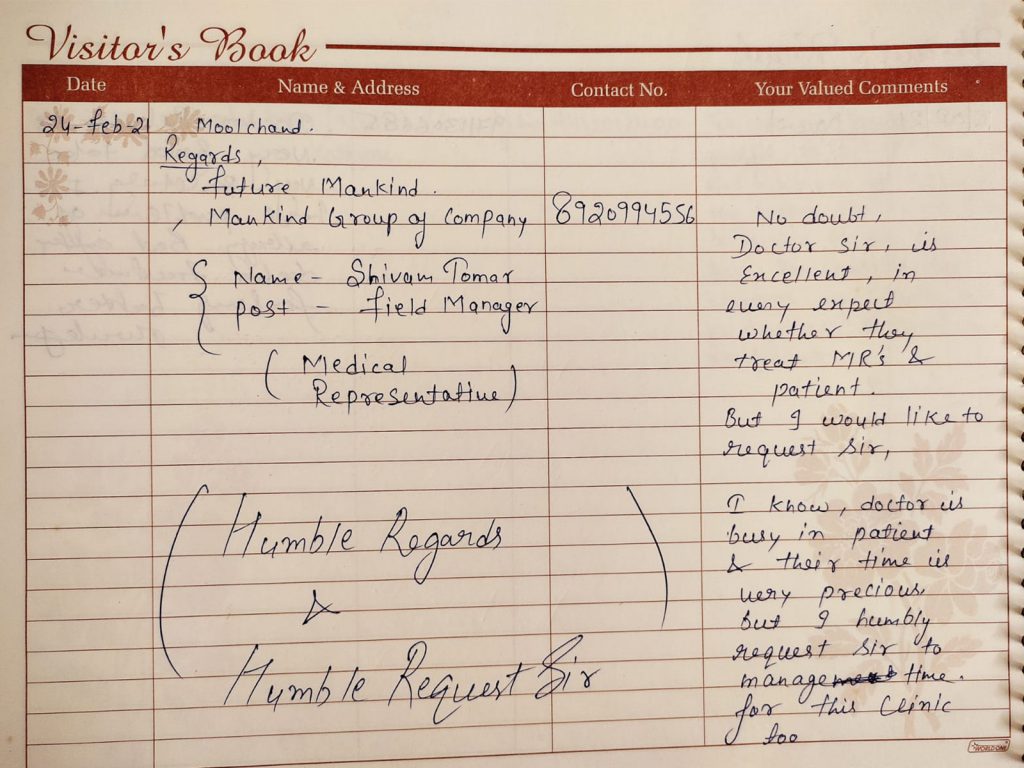 Visitor's Book
Date Name & Address Contact No. Your Valued Comments
24-Feb-21 Moolchand.
Regards,
future Mankind.
, Mankind Group of Company 8920994556
Name - Shivam Tomar
post - field Manager
(Medical
Representative)
No doubt,
Doctor Sir, is
Excellent, in
every expect
whether they
treat MR's &
patient.
But I would like to
request Sir,
(Humble Regards
&
Humble Request Sir)
I know, doctor is
busy in patient
& their time is
very precious
but I humbly
request Sir to
manage time.
for this Clinic
too
WORLDONE